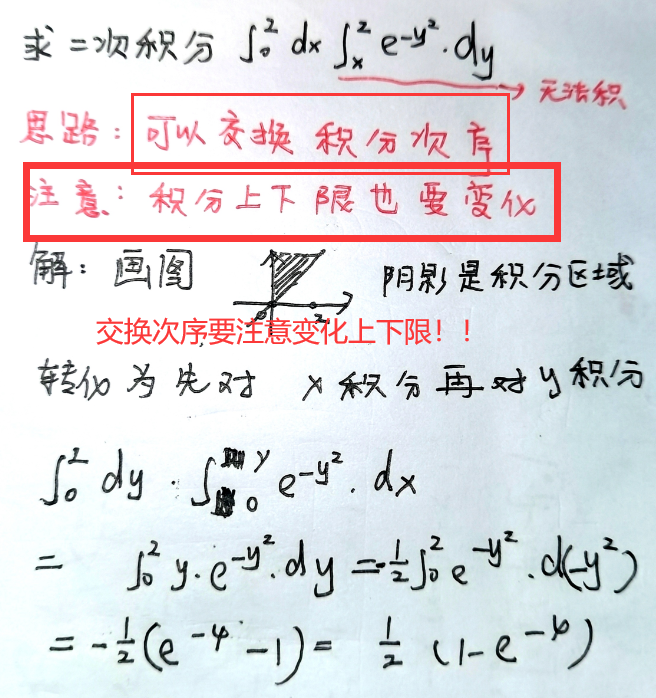 求二次积分 ∫₀² dx ∫ₓ² e^{-y²}·dy
无法积
思路：可以交换积分次序
注意：积分上下限也要变化
解：画图 阴影是积分区域
0 2
交换次序要注意变化上下限！！
转化为先对 x 积分再对 y 积分
∫₀² dy · ∫₀^y e^{-y²}·dx
= ∫₀² y·e^{-y²}·dy = -½∫₀² e^{-y²}·d(-y²)
= -½(e^{-4} -1) = ½(1-e^{-4})